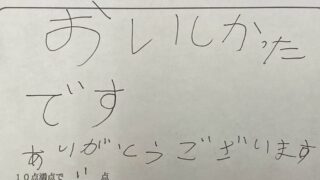 おいしかった
です
ありがとうございます
10点満点で 11 点